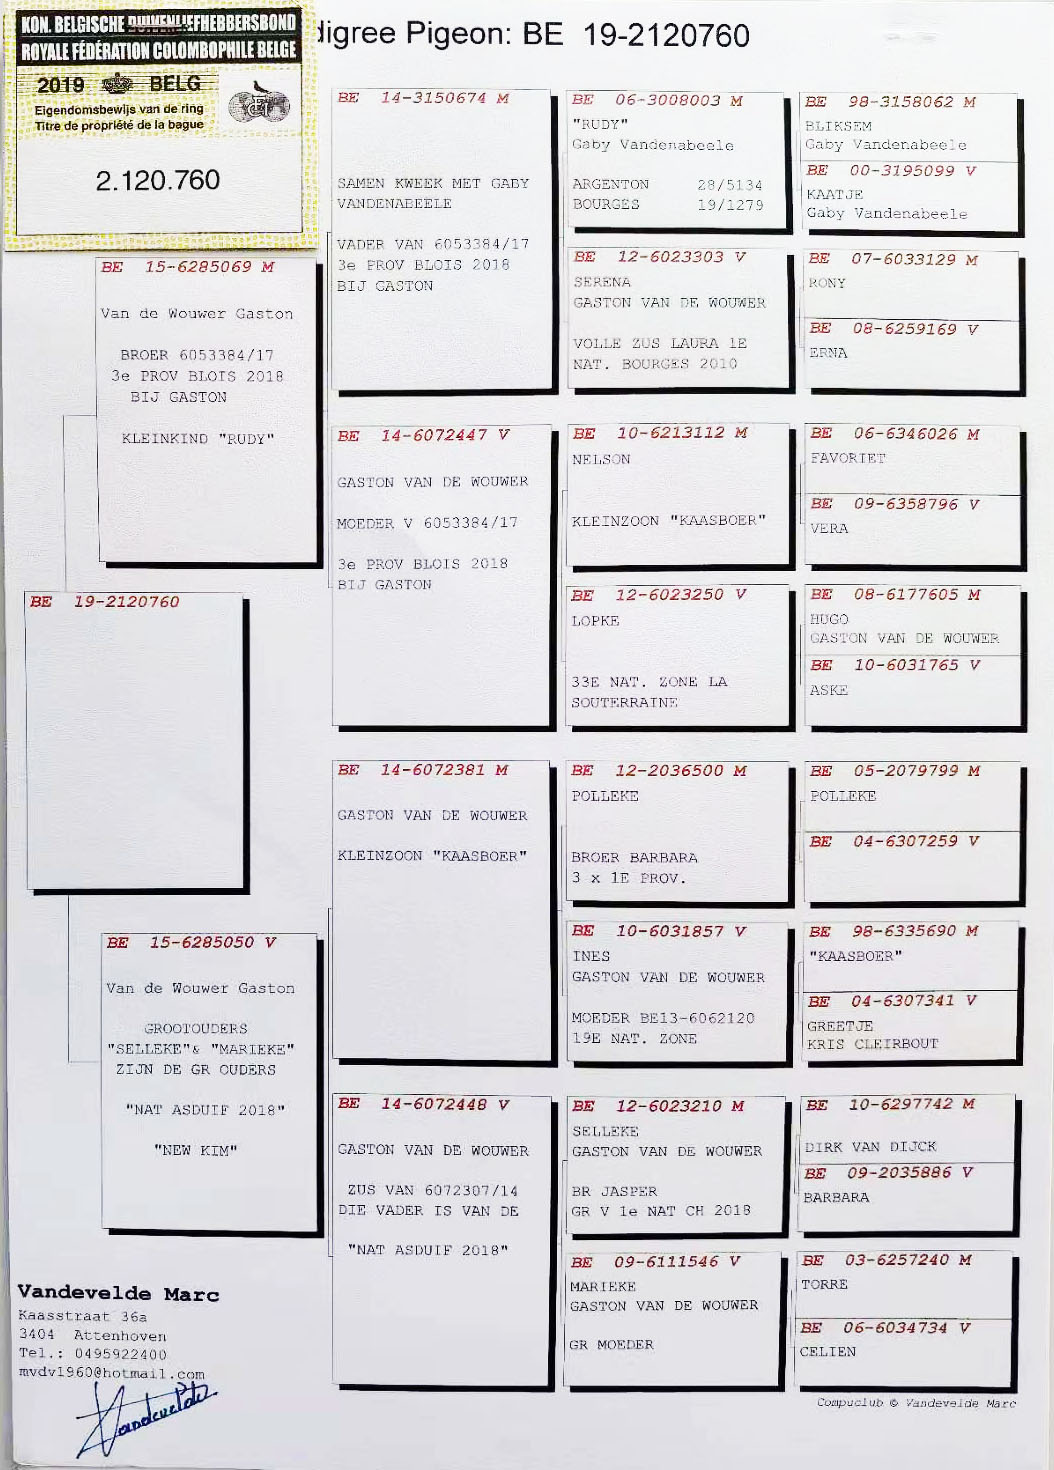 KON. BELGISCHE DUIVENLIEFHEBBERSBOND
ROYALE FÉDÉRATION COLOMBOPHILE BELGE
2019 BELG
Eigendomsbewijs van de ring
Titre de propriété de la bague
2.120.760
digree Pigeon: BE 19-2120760
BE 19-2120760
BE 15-6285069 M
Van de Wouwer Gaston
BROER 6053384/17
3e PROV BLOIS 2018
BIJ GASTON
KLEINKIND "RUDY"
BE 15-6285050 V
Van de Wouwer Gaston
GROOTOUDERS
"SELLEKE"& "MARIEKE"
ZIJN DE GR OUDERS
"NAT ASDUIF 2018"
"NEW KIM"
BE 14-3150674 M
SAMEN KWEEK MET GABY
VANDENABEELE
VADER VAN 6053384/17
3e PROV BLOIS 2018
BIJ GASTON
BE 14-6072447 V
GASTON VAN DE WOUWER
MOEDER V 6053384/17
3e PROV BLOIS 2018
BIJ GASTON
BE 14-6072381 M
GASTON VAN DE WOUWER
KLEINZOON "KAASBOER"
BE 14-6072448 V
GASTON VAN DE WOUWER
ZUS VAN 6072307/14
DIE VADER IS VAN DE
"NAT ASDUIF 2018"
BE 06-3008003 M
"RUDY"
Gaby Vandenabeele
ARGENTON 28/5134
BOURGES 19/1279
BE 12-6023303 V
SERENA
GASTON VAN DE WOUWER
VOLLE ZUS LAURA 1E
NAT. BOURGES 2010
BE 10-6213112 M
NELSON
KLEINZOON "KAASBOER"
BE 12-6023250 V
LOPKE
33E NAT. ZONE LA
SOUTERRAINE
BE 12-2036500 M
POLLEKE
BROER BARBARA
3 x 1E PROV.
BE 10-6031857 V
INES
GASTON VAN DE WOUWER
MOEDER BE13-6062120
19E NAT. ZONE
BE 12-6023210 M
SELLEKE
GASTON VAN DE WOUWER
BR JASPER
GR V 1e NAT CH 2018
BE 09-6111546 V
MARIEKE
GASTON VAN DE WOUWER
GR MOEDER
BE 98-3158062 M
BLIKSEM
Gaby Vandenabeele
BE 00-3195099 V
KAATJE
Gaby Vandenabeele
BE 07-6033129 M
RONY
BE 08-6259169 V
ERNA
BE 06-6346026 M
FAVORIET
BE 09-6358796 V
VERA
BE 08-6177605 M
HUGO
GASTON VAN DE WOUWER
BE 10-6031765 V
ASKE
BE 05-2079799 M
POLLEKE
BE 04-6307259 V
BE 98-6335690 M
"KAASBOER"
BE 04-6307341 V
GREETJE
KRIS CLEIRBOUT
BE 10-6297742 M
DIRK VAN DIJCK
BE 09-2035886 V
BARBARA
BE 03-6257240 M
TORRE
BE 06-6034734 V
CELIEN
Vandevelde Marc
Kaasstraat 36a
3404 Attenhoven
Tel.: 0495922400
mvdv1960@hotmail.com
Compuclub © Vandevelde Marc